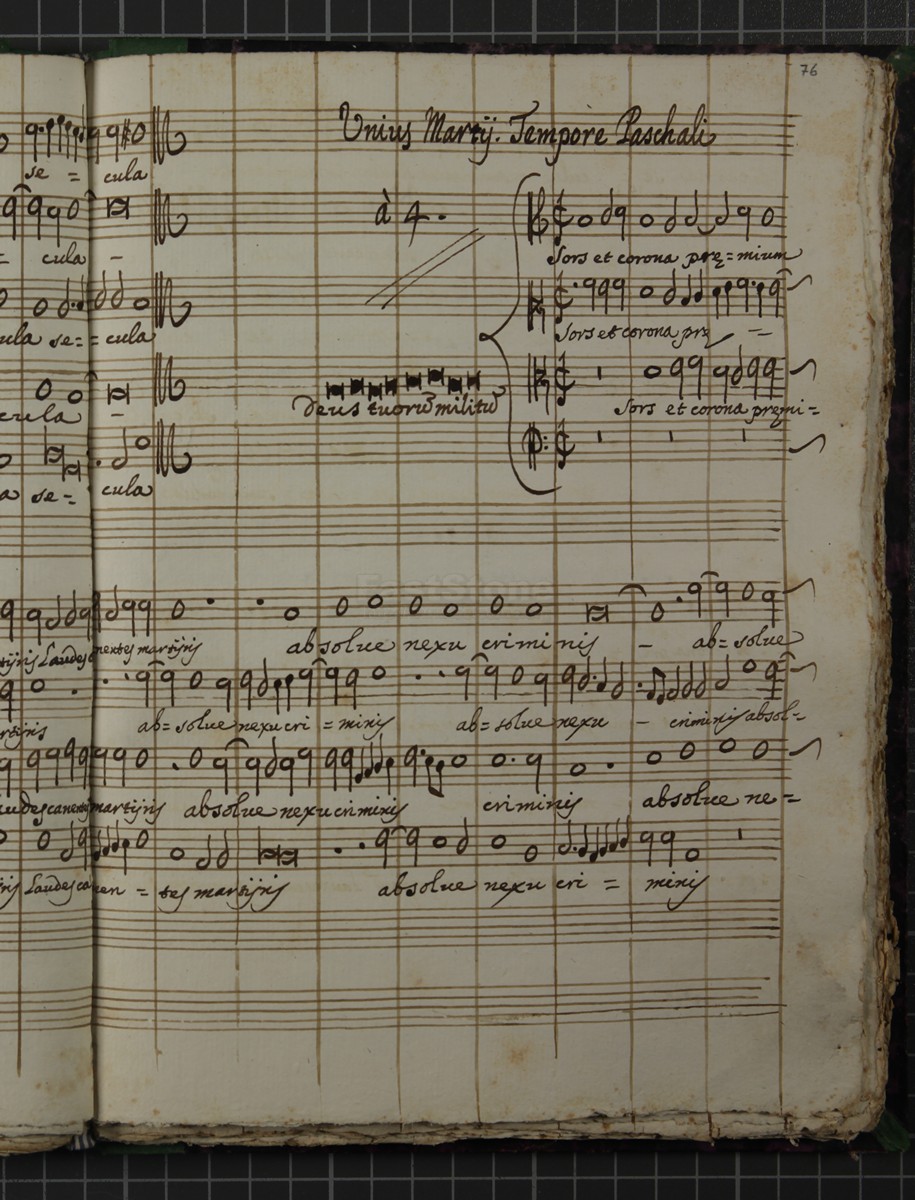 76
Unius Martÿ. Tempore Paschali
se = cula
à 4.
- cula -
Sors et corona prę=mium
cula se== cula
Sors et corona prę - -
cula -
deus tuorũ militũ
Sors et corona premi=
a se= cula
nextes martÿris absolue nexu criminis - ab= solue
ab= solue nexu cri = minis ab= solue nexu - criminis absol=
martÿris absolue nexu criminis criminis absolue ne=
Laudes ca en = tes martÿris absolue nexu cri = minis